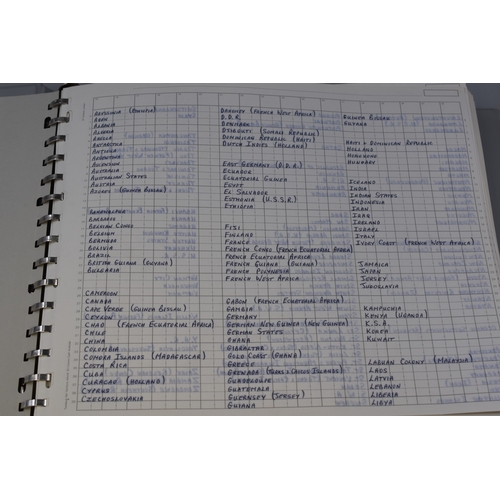 ABYSSINIA
ADEN
ALBANIA
ALGERIA
ANGOLA
ANTARCTICA
ANTIGUA
ARGENTINA
ASCENSION
AUSTRALIA
AUSTRALIAN STATES
AUSTRIA
AZORES (GUINEA BISSAU)
BARBADOS
BELGIAN CONGO
BELGIUM
BERMUDA
BOLIVIA
BRAZIL
BRITISH GUIANA (GUYANA)
BULGARIA
CAMEROON
CANADA
CAPE VERDE (GUINEA BISSAU)
CEYLON
CHAD (FRENCH EQUATORIAL AFRICA)
CHILE
CHINA
COLUMBIA
COMORA ISLANDS (MADAGASCAR)
COSTA RICA
CUBA
CURACAO (HOLLAND)
CYPRUS
CZECHOSLOVAKIA
DAHOMEY (FRENCH WEST AFRICA)
D.D.R.
DENMARK
DJIBOUTI (SOMALI REPUBLIC)
DOMINICAN REPUBLIC (HAITI)
DUTCH INDIES (HOLLAND)
EAST GERMANY (D.D.R.)
ECUADOR
EQUATORIAL GUINEA
EGYPT
EL SALVADOR
ESTHONIA (U.S.S.R.)
ETHIOPIA
FIJI
FINLAND
FRANCE
FRENCH CONGO (FRENCH EQUATORIAL AFRICA)
FRENCH EQUATORIAL AFRICA
FRENCH GUIANA (GUIANA)
FRENCH POLYNESIA
FRENCH WEST AFRICA
GABON (FRENCH EQUATORIAL AFRICA)
GAMBIA
GERMANY
GERMAN NEW GUINEA (NEW GUINEA)
GERMAN STATES
GHANA
GIBRALTAR
GOLD COAST (GHANA)
GREECE
GRENADA
GUADELOUPE
GUATEMALA
GUERNSEY (JERSEY)
GUIANA
GUINEA BISSAU
GUYANA
HAITI & DOMINICAN REPUBLIC
HOLLAND
HONGKONG
HUNGARY
ICELAND
INDIA
INDIAN STATES
INDONESIA
IRAN
IRAN
IRELAND
ISRAEL
ITALY
IVORY COAST (FRENCH WEST AFRICA)
JAMAICA
JAPAN
JERSEY
JUGOSLAVIA
KAMPUCHIA
KENYA (UGANDA)
K.S.A.
KOREA
KUWAIT
LABUAN COLONY (MALAYSIA)
LAOS
LATVIA
LEBANON
LIBERIA
LIBYA